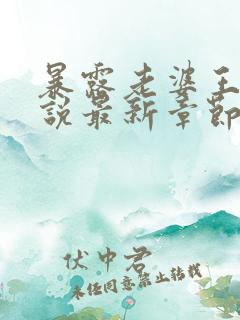 暴露老婆王
说最新章节
伏中君
未经同意禁止转载